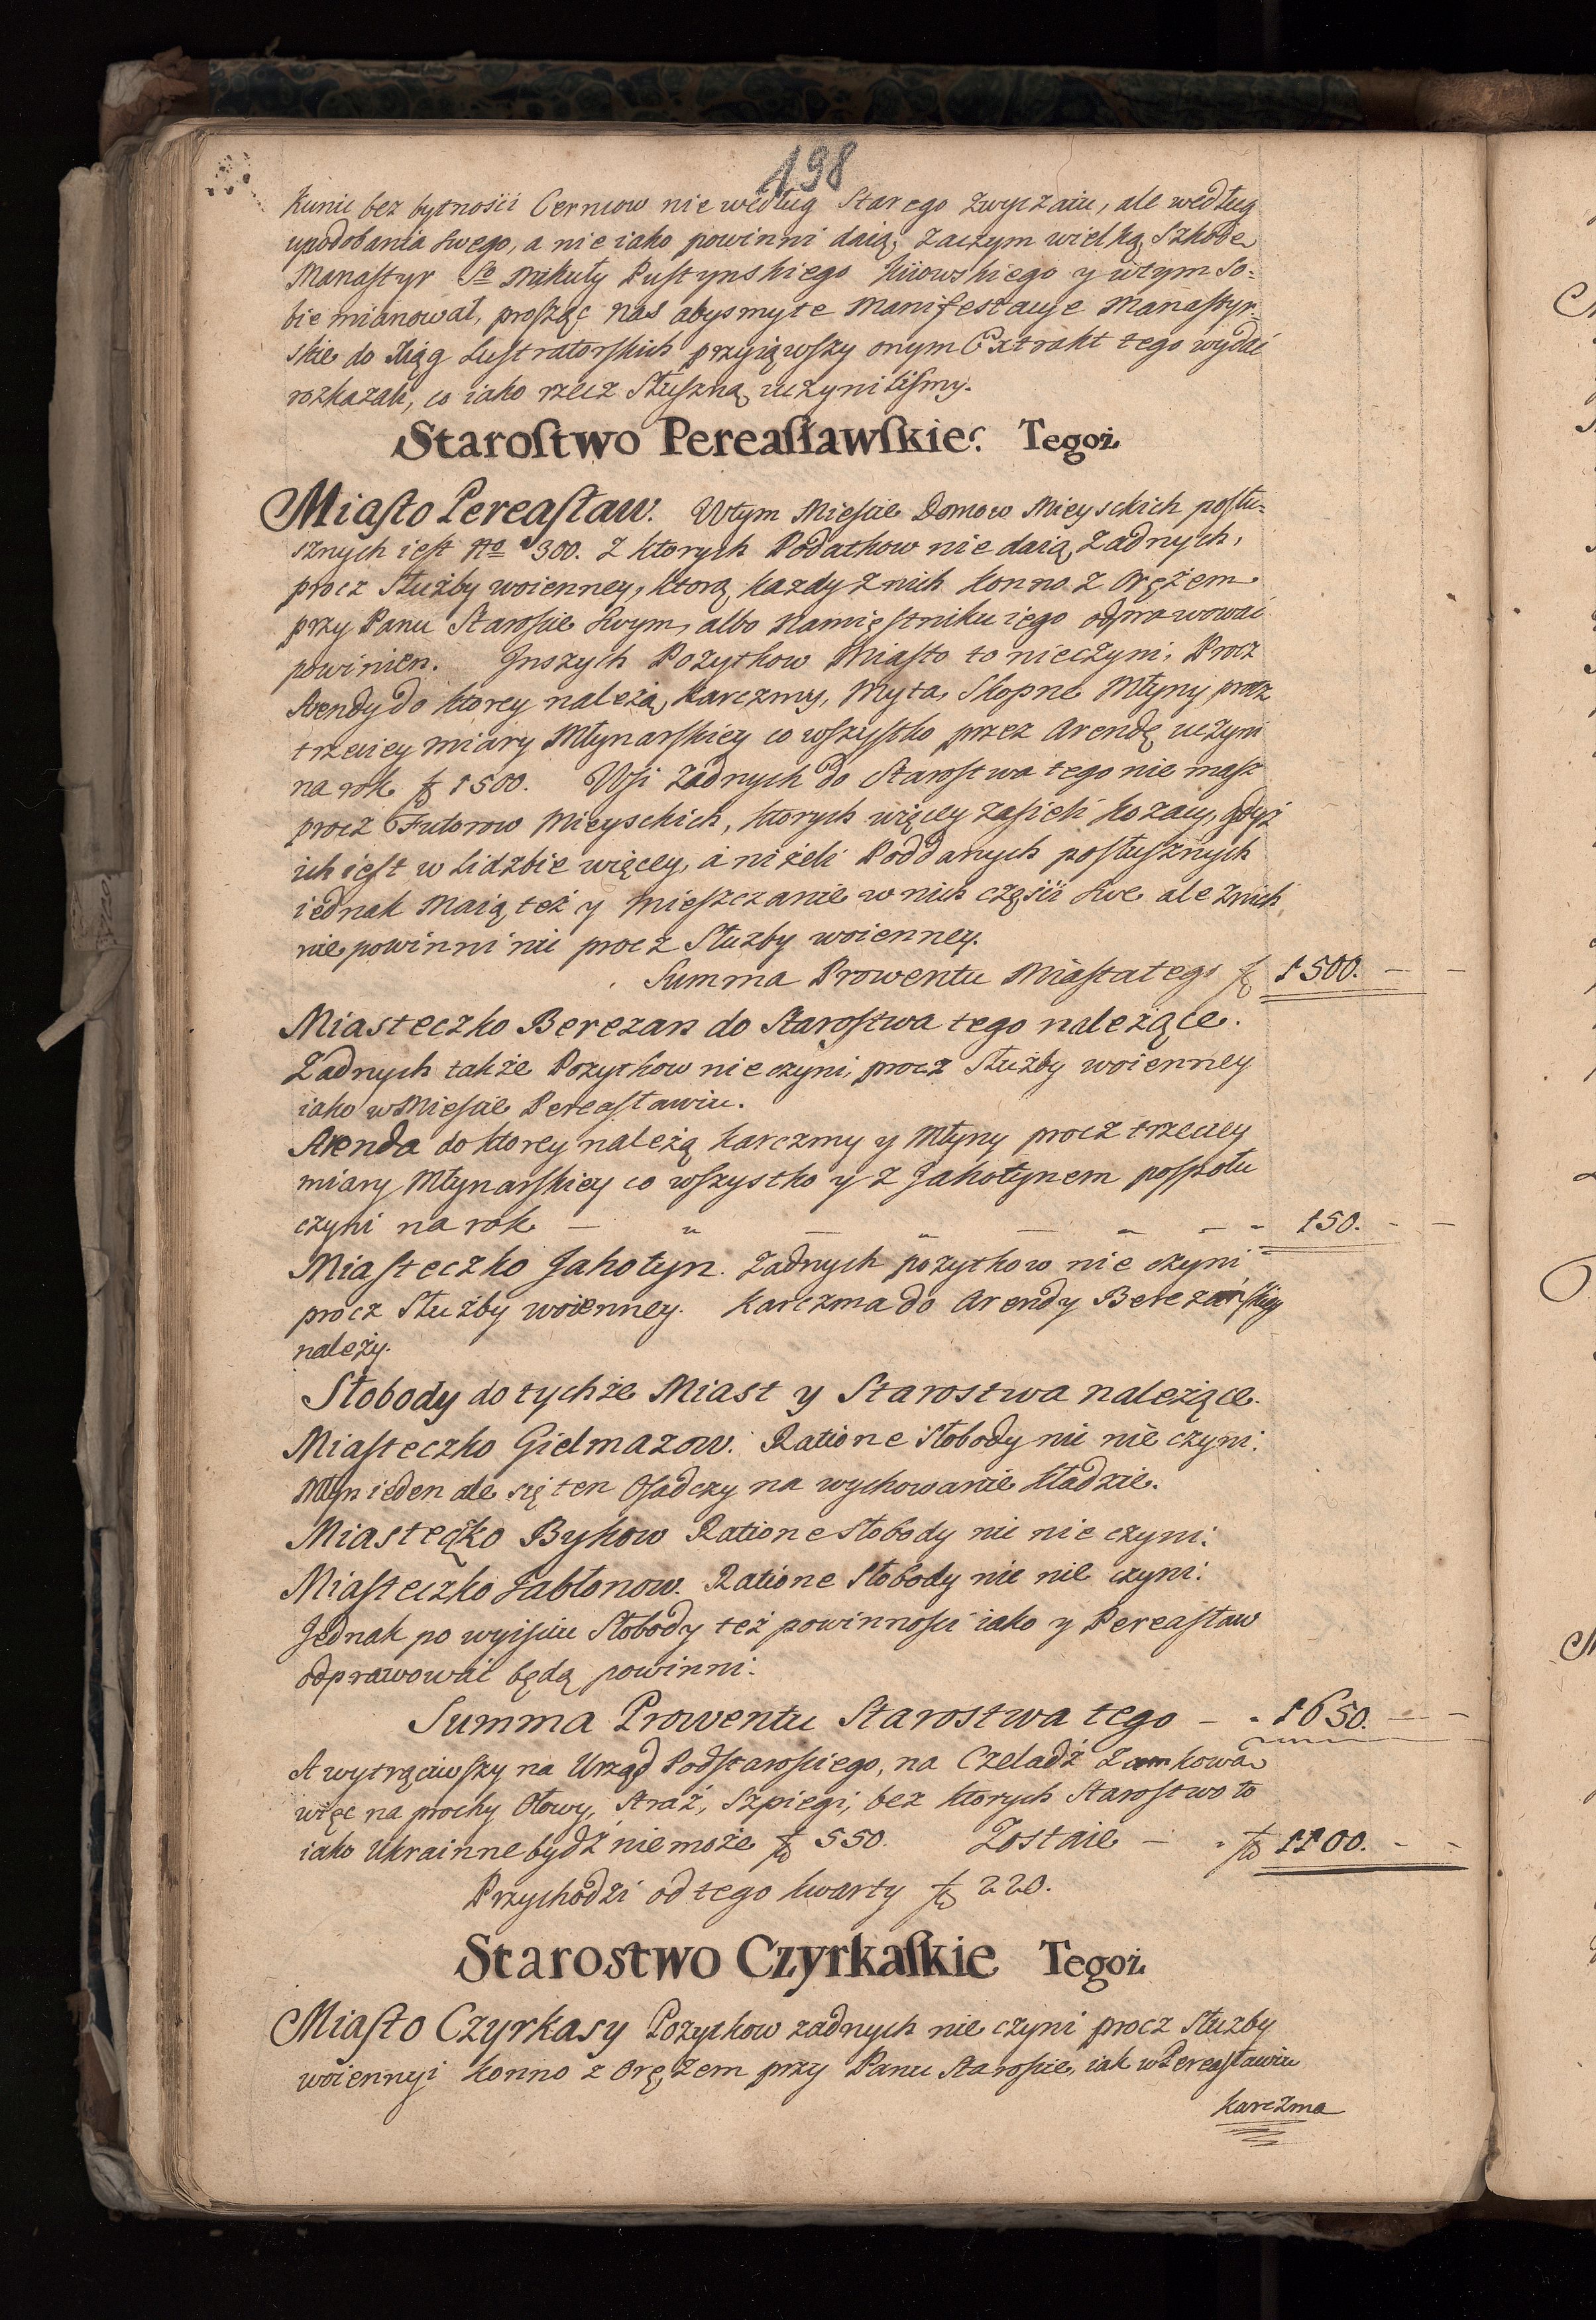 198
Kunic bez bytnosći Cerncow nie według Starego zwyczaiu, ale według
upodobania swego, a nie iako powinni daią, zaczym wielką Szkodę
Manastyr So Mikuły Pustynskiego Kiiowskiego y wtym So-
bie mianował, prosząc nas abysmy te Manifestacye Manastyr-
skie do Xiąg Lustratorskich przyiąwszy onym Extrakt tego wydać
rozkazali, co iako rzecz Słuszną uczynilismy.
Starostwo Pereasławskie. Tegoż
Miasto Pereasław. Wtym Miescie Domow Mieyskich posłu-
sznych iest No 300. z ktorych Podatkow nie daią żadnych,
procz Służby woienney, ktorą każdy z nich konno z Orężem
przy Panu Starosćie swym, albo Namięstniku iego odprawować
powinien. Inszych Pożytkow Miasto to nieczyni, Procz
Arendy do ktorey należą Karczmy, Myta, Skopne Młyny, procz
trzeciey miary Młynarskiey co wszystko przez Arendę uczyni
na rok fo 1500. Wsi żadnych do Starostwa tego nie masz
procz Futorow Mieyskich, ktorych więcey zasieli Kozacy, gdyż
ich iest w Lidzbie więcey, a niżeli Poddanych posłusznych
iednak Maią też y Mieszczanie w nich częsći swe ale z nich
nie powinni nic procz Służby woienney.
Summa Prowentu Miasta tego fo 1500. — —
Miasteczko Berezan do Starostwa tego należące.
Żadnych także Pożytkow nie czyni, procz Służby woienney
iako w Miescie Pereasławiu.
Arenda do ktorey należą karczmy y Młyny procz trzeciey
miary Młynarskiey co wszystko y z Jahotynem pospołu
czyni na rok — „ — „ — „ — - 150. - —
Miasteczko Jahotyn. Żadnych pożytkow nie czyni
procz Służby woienney. Karczma do Arendy Berezańskiey
należy.
Słobody do tychże Miast y Starostwa należące.
Miasteczko Gielmazow. Ratione Słobody nic nie czyni.
Młyn ieden ale się ten Osadczy na wychowanie kładzie.
Miasteczko Bykow Ratione Słobody nic nie czyni.
Miasteczko Jabłonow. Ratione Słobody nic nie czyni.
Jednak po wyiściu Słobody też powinności iako y Pereasław
odprawować będą powinni.
Summa Prowentu Starostwa tego — - 1650. — —
A wytrąciwszy na Urząd Podstarosćiego, na Czeladź Zamkową
więc na prochy Ołowy, Straż, Szpiegi, bez ktorych Starostwo to
iako Ukrainne bydź nie może fo 550. Zostaie — - fo 1100. - -
Przychodzi od tego kwarty fo 220.
Starostwo Czyrkaskie Tegoż
Miasto Czyrkasy Pożytkow żadnych nie czyni procz Służby
woiennyi konno z Orężem przy Panu Starosćie, iak w Pereasławiu
Karczma